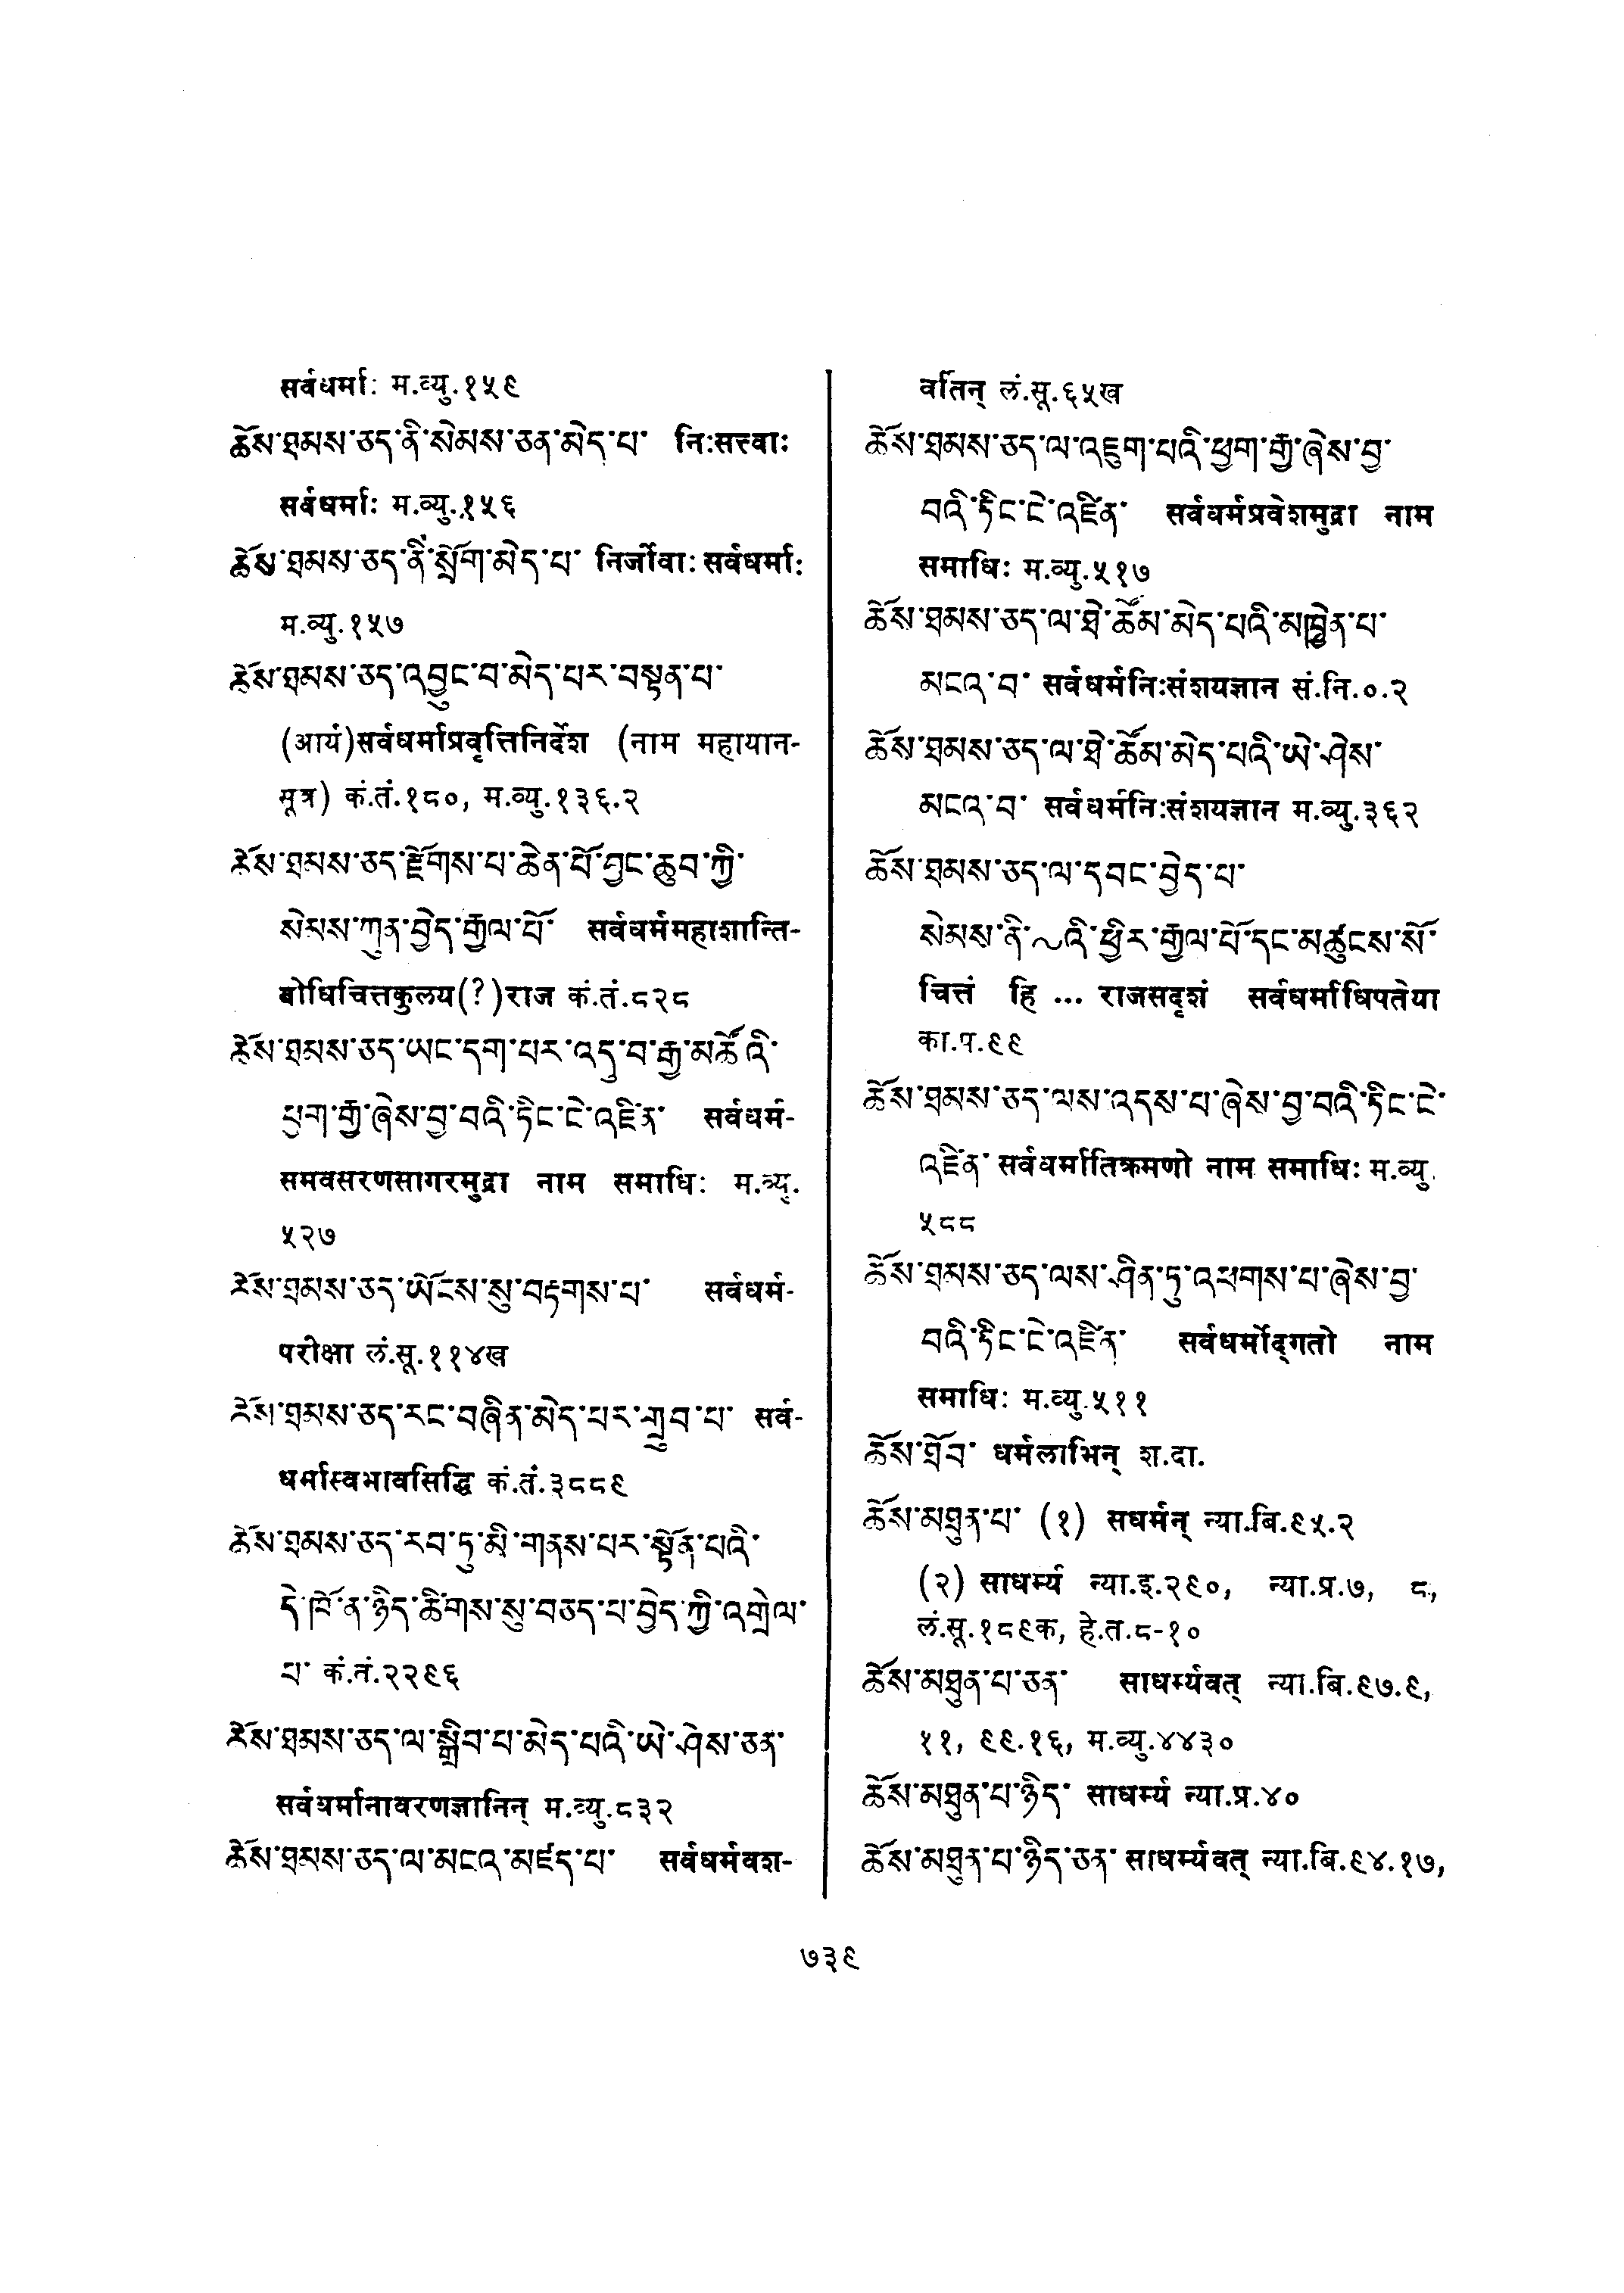 सर्वधर्माः म.व्यु.१५९
ཆོས་ཐམས་ཅད་ནི་སེམས་ཅན་མེད་པ་ निःसत्त्वाः
सर्वधर्माः म.व्यु.१५६
ཆོས་ཐམས་ཅད་ནི་སྲོག་མེད་པ་ निर्जीवाः सर्वधर्माः
म.व्यु.१५७
ཆོས་ཐམས་ཅད་འབྱུང་བ་མེད་པར་བསྟན་པ་
(आर्य)सर्वधर्माप्रवृत्तिनिर्देश (नाम महायान-
सूत्र) कं.तं.१८०, म.व्यु.१३६.२
ཆོས་ཐམས་ཅད་རྫོགས་པ་ཆེན་པོ་བྱང་ཆུབ་ཀྱི་
སེམས་ཀུན་བྱེད་རྒྱལ་པོ་ सर्वधर्ममहाशान्ति-
बोधिचित्तकुलय(?)राज कं.तं.८२८
ཆོས་ཐམས་ཅད་ཡང་དག་པར་འདུ་བ་རྒྱ་མཚོའི་
ཕྱག་རྒྱ་ཞེས་བྱ་བའི་ཏིང་ངེ་འཛིན་ सर्वधर्म-
समवसरणसागरमुद्रा नाम समाधिः म.व्यु.
५२७
ཆོས་ཐམས་ཅད་ཡོངས་སུ་བརྟགས་པ་ सर्वधर्म-
परीक्षा लं.सू.११४ख
ཆོས་ཐམས་ཅད་རང་བཞིན་མེད་པར་གྲུབ་པ་ सर्व-
धर्मास्वभावसिद्धि कं.तं.३८८९
ཆོས་ཐམས་ཅད་རབ་ཏུ་མི་གནས་པར་སྟོན་པའི་
དེ་ཁོ་ན་ཉིད་ཚིགས་སུ་བཅད་པ་བྱེད་ཀྱི་འགྲེལ་
པ་ कं.तं.२२९६
ཆོས་ཐམས་ཅད་ལ་སྒྲིབ་པ་མེད་པའི་ཡེ་ཤེས་ཅན་
सर्वधर्मानावरणज्ञानिन् म.व्यु.८३२
ཆོས་ཐམས་ཅད་ལ་མངའ་མཛད་པ་ सर्वधर्मवश-
वर्तिन् लं.सू.६५ख
ཆོས་ཐམས་ཅད་ལ་འཇུག་པའི་ཕྱག་རྒྱ་ཞེས་བྱ་
བའི་ཏིང་ངེ་འཛིན་ सर्वधर्मप्रवेशमुद्रा नाम
समाधिः म.व्यु.५१७
ཆོས་ཐམས་ཅད་ལ་ཐེ་ཚོམ་མེད་པའི་མཁྱེན་པ་
མངའ་བ་ सर्वधर्मनिःसंशयज्ञान सं.नि.०.२
ཆོས་ཐམས་ཅད་ལ་ཐེ་ཚོམ་མེད་པའི་ཡེ་ཤེས་
མངའ་བ་ सर्वधर्मनिःसंशयज्ञान म.व्यु.३६२
ཆོས་ཐམས་ཅད་ལ་དབང་བྱེད་པ་
སེམས་ནི་~འི་ཕྱིར་རྒྱལ་པོ་དང་མཚུངས་སོ་
चित्तं हि ... राजसदृशं सर्वधर्माधिपतेया
का.प.९९
ཆོས་ཐམས་ཅད་ལས་འདས་པ་ཞེས་བྱ་བའི་ཏིང་ངེ་
འཛིན་ सर्वधर्मातिक्रमणो नाम समाधिः म.व्यु.
५८८
ཆོས་ཐམས་ཅད་ལས་ཤིན་ཏུ་འཕགས་པ་ཞེས་བྱ་
བའི་ཏིང་ངེ་འཛིན་ सर्वधर्मोद्गतो नाम
समाधिः म.व्यु.५११
ཆོས་ཐོབ་ धर्मलाभिन् श.दा.
ཆོས་མཐུན་པ་ (१) सधर्मन् न्या.बि.९५.२
(२) साधर्म्य न्या.इ.२९०, न्या.प्र.७, ८,
लं.सू.१८९क, हे.त.८-१०
ཆོས་མཐུན་པ་ཅན་ साधर्म्यवत् न्या.बि.९७.९,
११, ९९.१६, म.व्यु.४४३०
ཆོས་མཐུན་པ་ཉིད་ साधर्म्य न्या.प्र.४०
ཆོས་མཐུན་པ་ཉིད་ཅན་ साधर्म्यवत् न्या.बि.९४.१७,
७३९